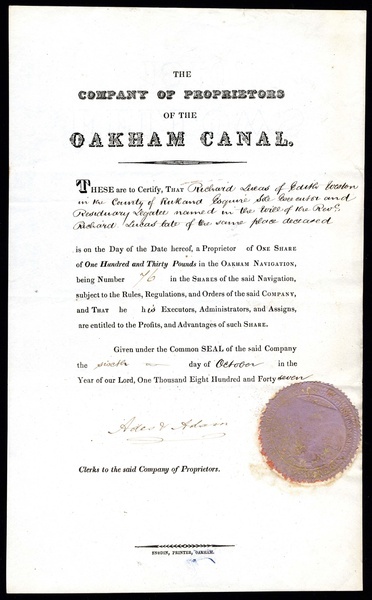 THE
COMPANY OF PROPRIETORS
OF THE
OAKHAM CANAL.
THESE are to Certify, THAT Richard Lucas of Edith Weston
in the County of Rutland Esquire Sole Executor and
Residuary Legatee named in the Will of the Revd.
Richard Lucas late of the same place deceased
is on the Day of the Date hereof, a Proprietor of ONE SHARE
of One Hundred and Thirty Pounds in the OAKHAM NAVIGATION,
being Number 76 in the SHARES of the said Navigation,
subject to the Rules, Regulations, and Orders of the said COMPANY,
and THAT he his Executors, Administrators, and Assigns,
are entitled to the Profits, and Advantages of such SHARE.
Given under the Common SEAL of the said Company
the sixth day of October in the
Year of our Lord, One Thousand Eight Hundred and Forty seven
& Adam
Clerks to the said Company of Proprietors.
PRINTER, OAKHAM.